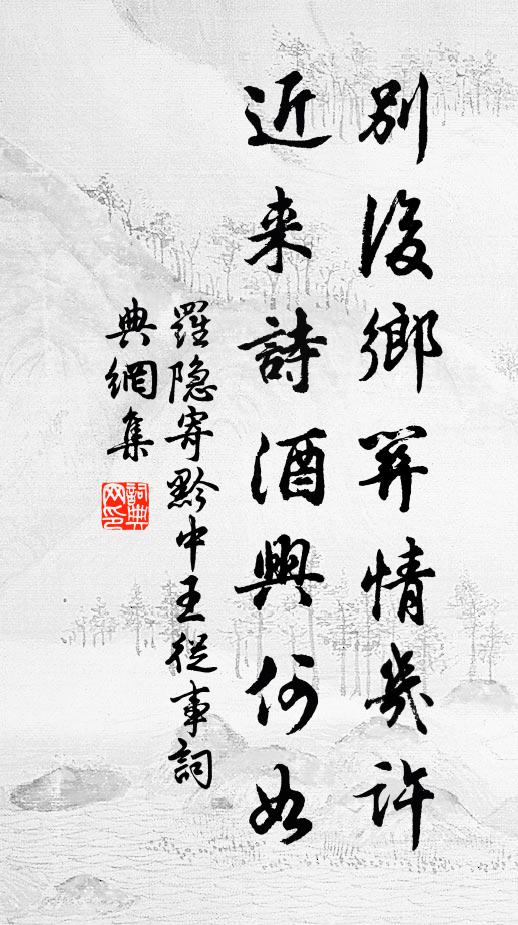 別後鄉關情幾許
近来詩酒興何如
羅隐寄黔中王從事詞
典網集
詞典
网印